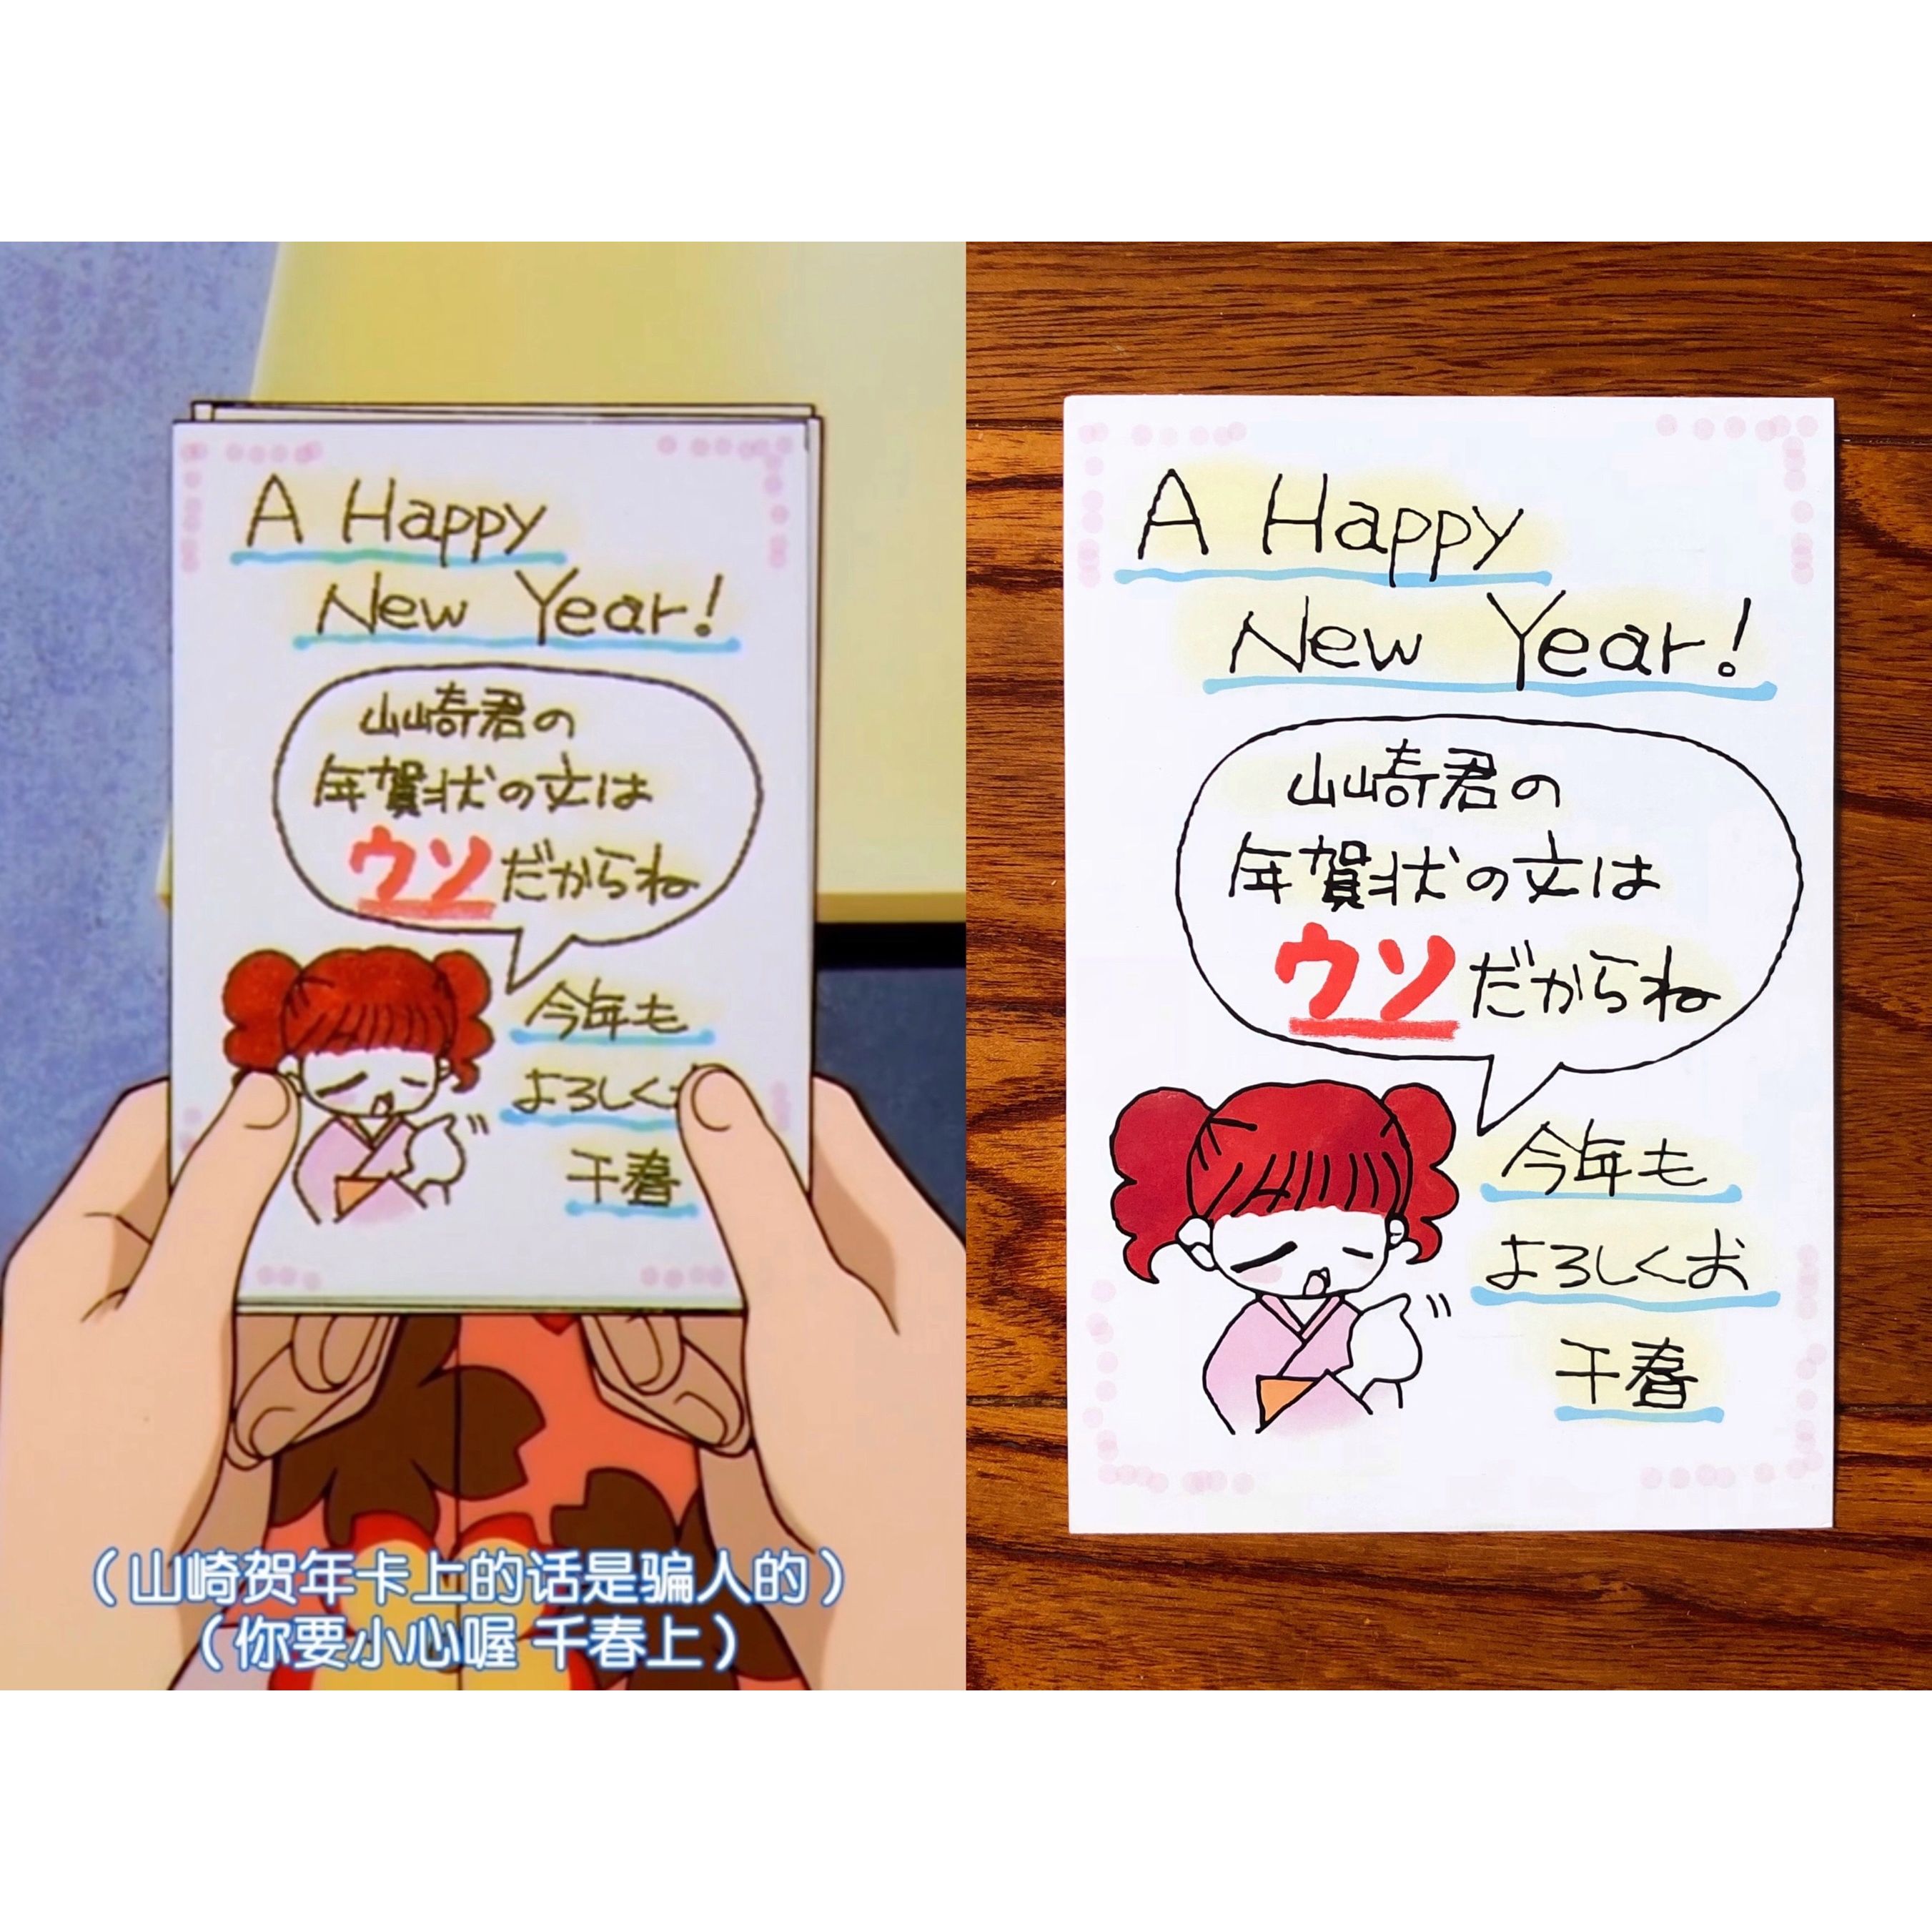 A Happy
New Year!
山崎君の
年賀状の文は
ウソだからね
今年も
よろしく
千春
(山崎贺年卡上的话是骗人的)
(你要小心喔 千春上)
A Happy
New Year!
山崎君の
年賀状の文は
ウソだからね
今年も
よろしくお
千春